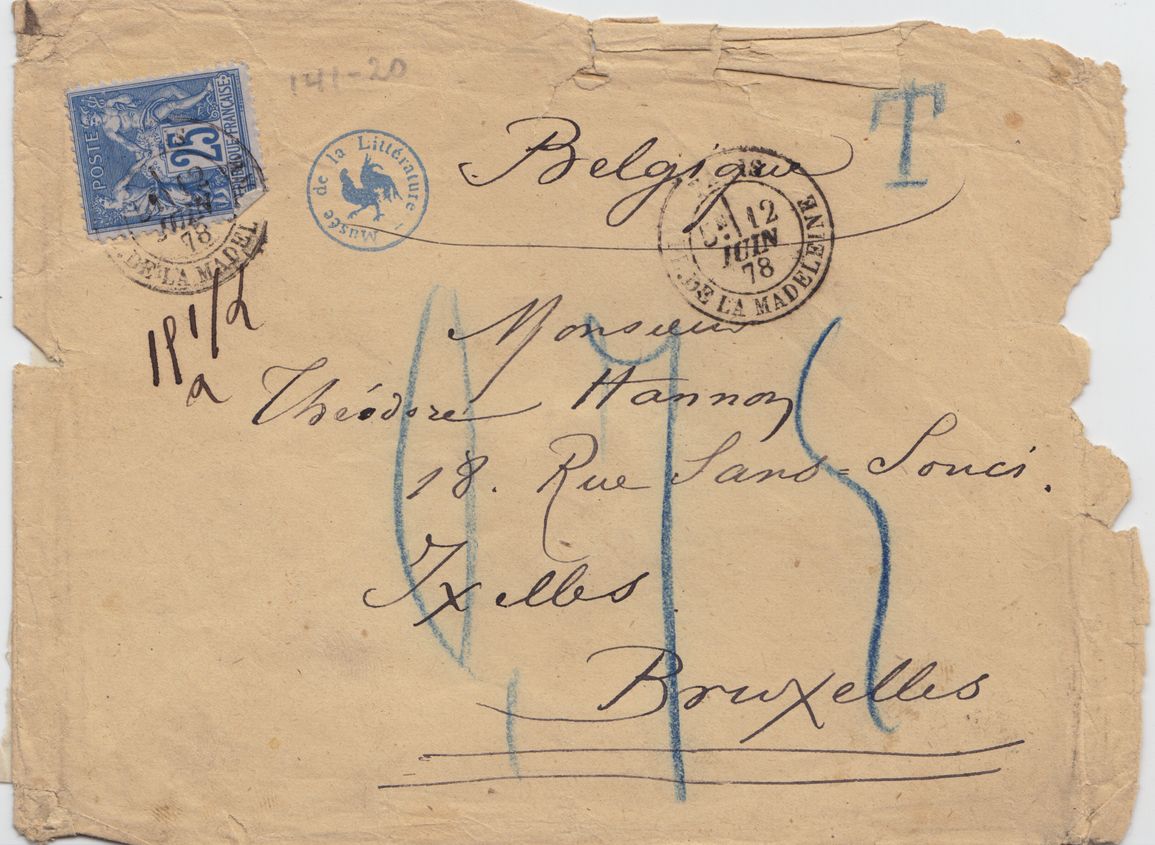 141-20
POSTE
25
RÉPUBLIQUE FRANÇAISE
12
JUIN
78
DE LA MADEL
Musée de la Littérature
Belgique
T
12
JUIN
78
DE LA MADELEINE
1/2
Monsieur
Théodore Hannon
18. Rue Sans=Souci.
Ixelles
Bruxelles